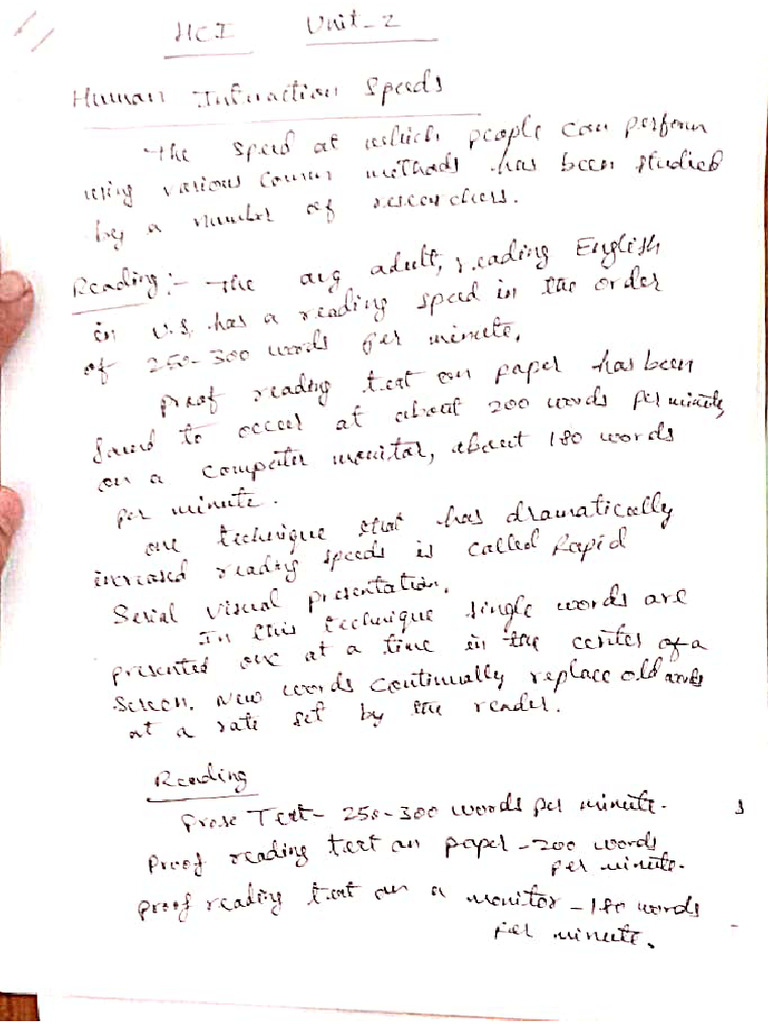 HCI Unit-2
Human Interaction Speeds
The speed at which people can perform
using various comm methods has been studied
by a number of researchers.
Reading :- The avg adult, reading English
in U.S. has a reading speed in the order
of 250-300 words per minute.
proof reading text on paper has been
found to occur at about 200 words per minute,
on a computer monitor, about 180 words
per minute.
one technique that has dramatically
increased reading speeds is called Rapid
Serial Visual presentation.
In this technique single words are
presented one at a time in the center of a
screen. New words continually replace old words
at a rate set by the reader.
Reading
Prose Text - 250-300 words per minute.
proof reading text on paper - 200 words
per minute.
proof reading text on a monitor - 180 words
per minute.